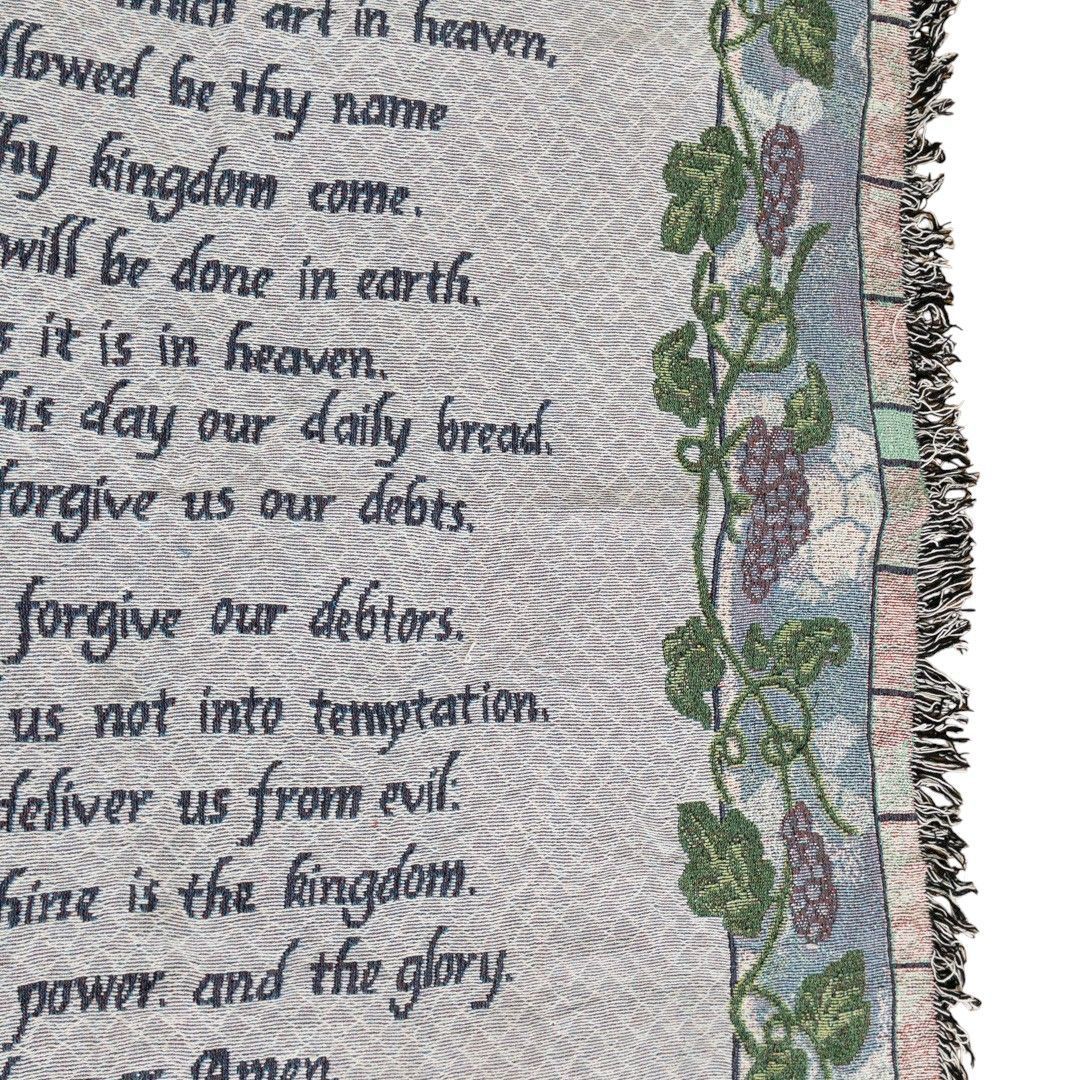 which art in heaven,
llowed be thy name
hy kingdom come.
will be done in earth,
s it is in heaven.
his day our daily bread.
forgive us our debts,
forgive our debtors.
us not into temptation,
deliver us from evil:
hine is the kingdom.
power. and the glory.
Amen